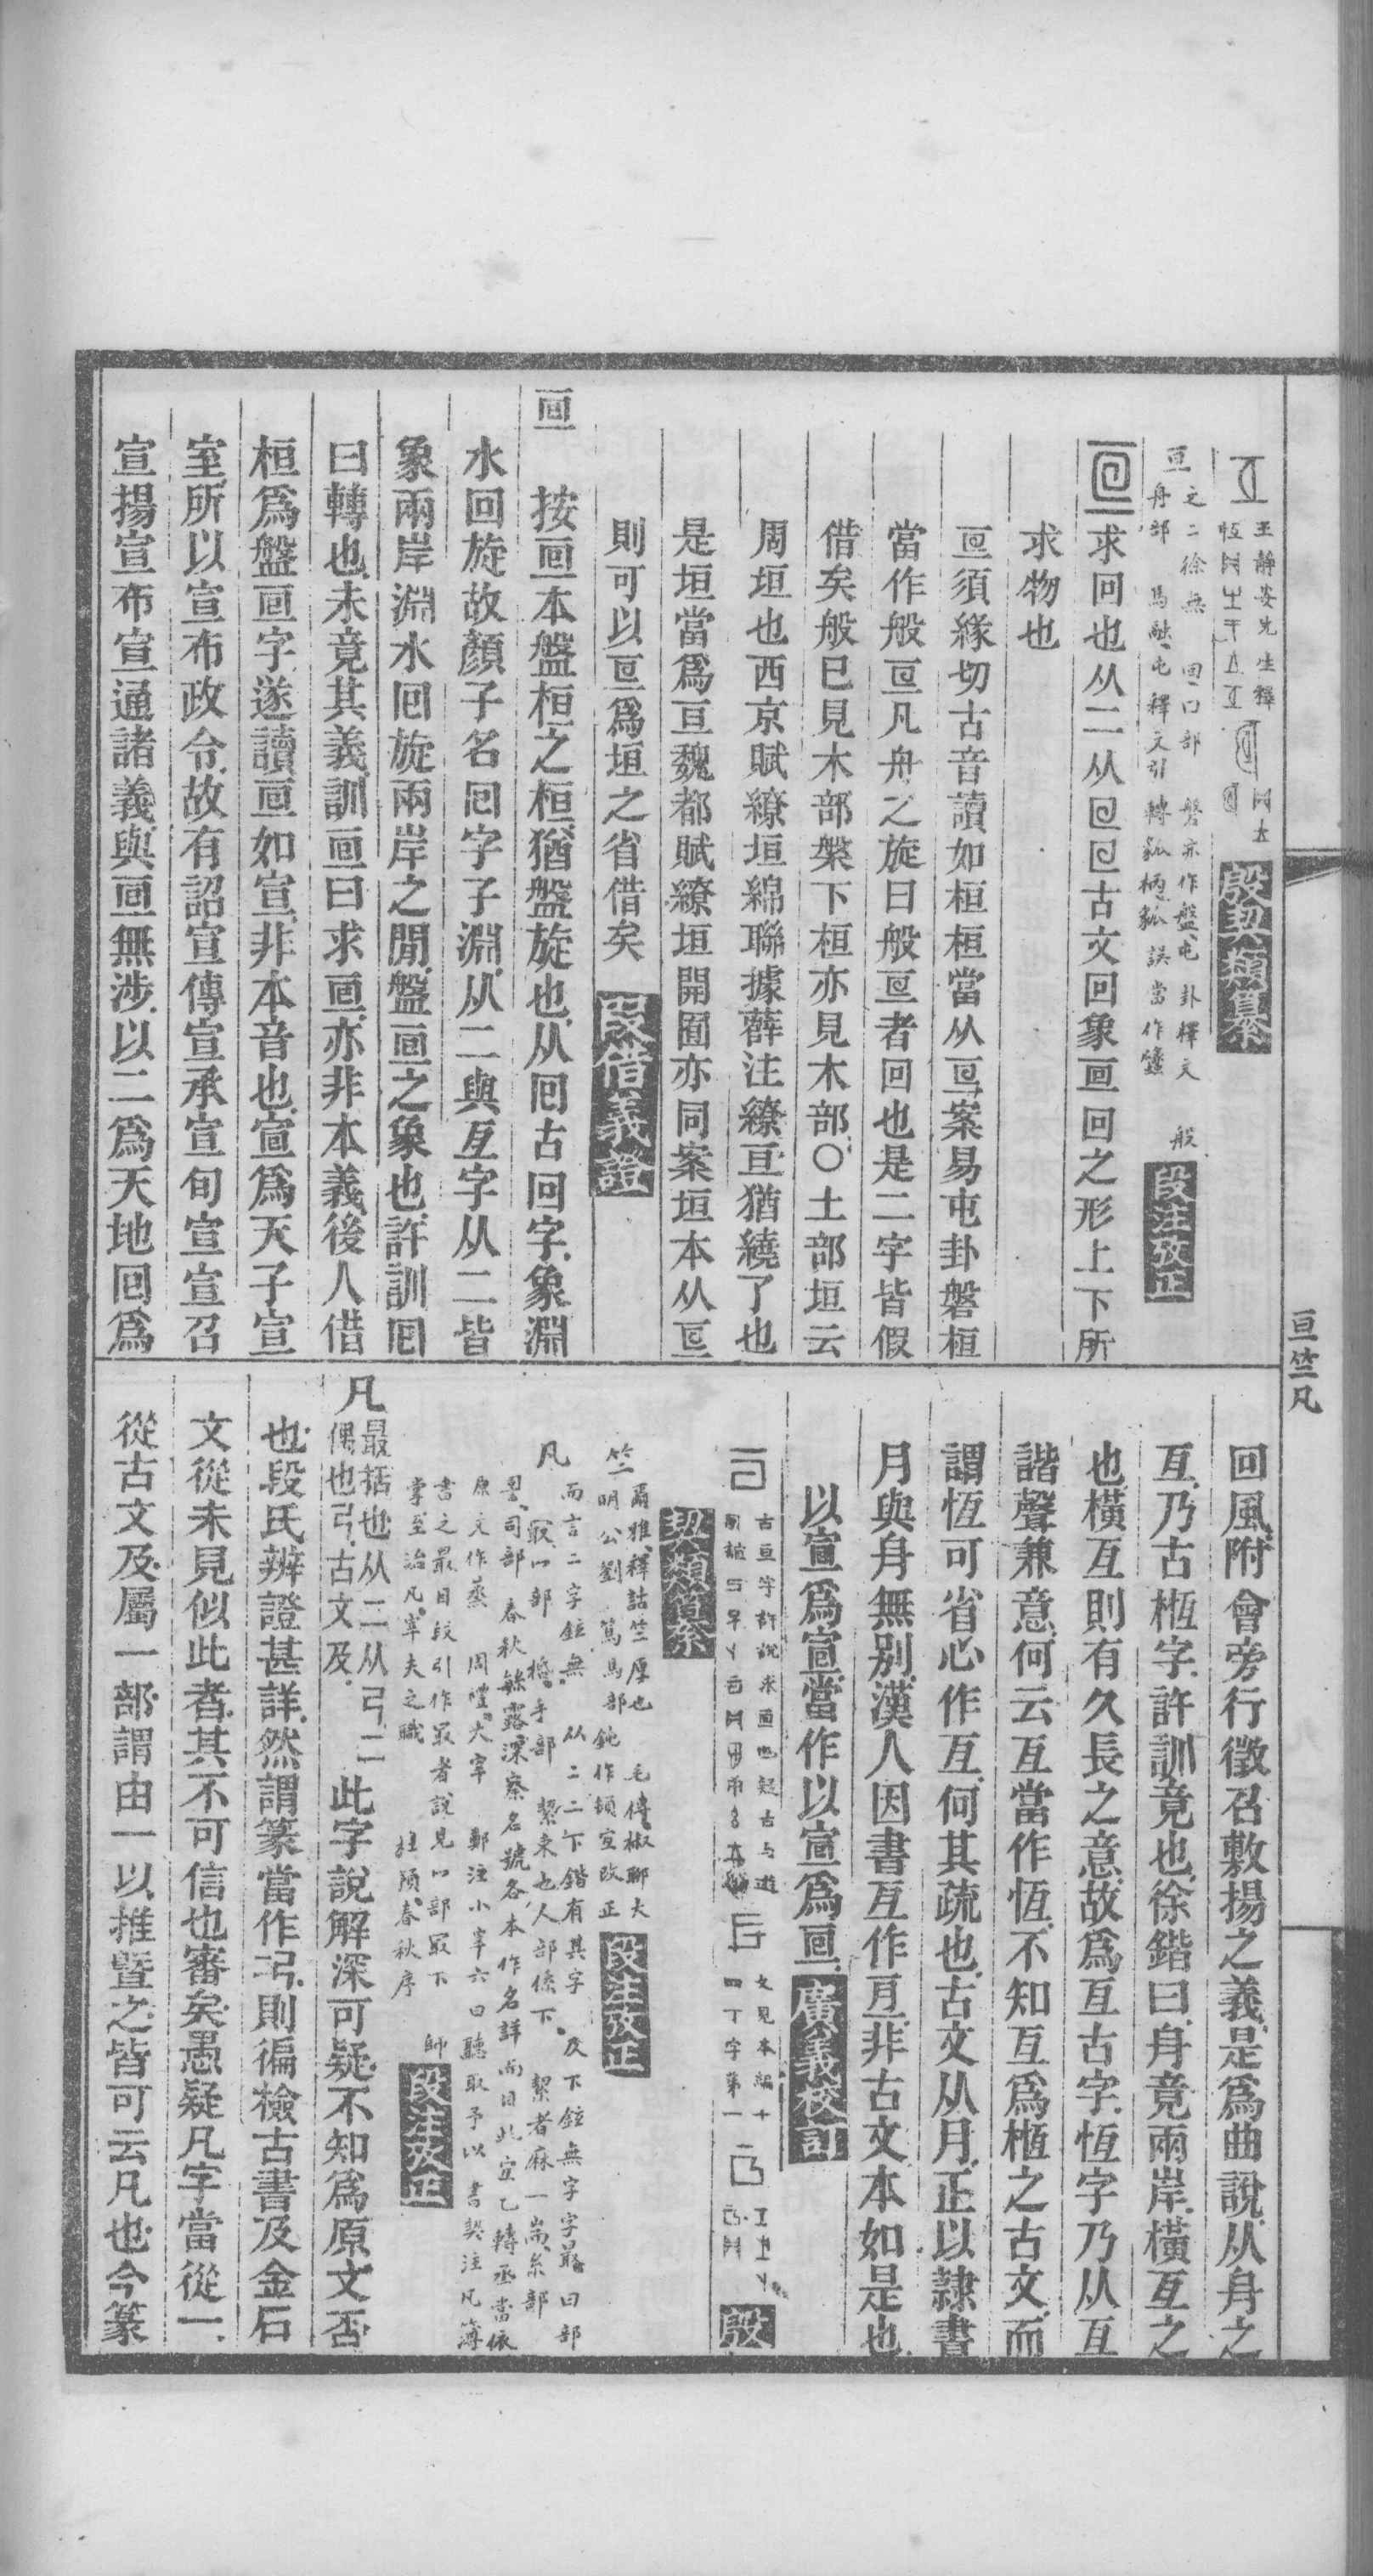 王靜安先生釋
殷契類纂
亘
之二徐無 回口部 磐亦作盤屯卦釋文
舟部 馬融屯釋文引 轉 般
段注攷正
求回也从二从囘囘古文回象亘回之形上下所
求物也
亘須緣切古音讀如桓桓當从亘案易屯卦磐桓
當作般亘凡舟之旋曰般亘者回也是二字皆假
借矣般已見木部槃下桓亦見木部○土部垣云
周垣也西京賦繚垣綿聯據薛注繚亘猶繞了也
是垣當爲亘魏都賦繚垣開囿亦同案垣本从亘
則可以亘爲垣之省借矣 段借義證
亘 按亘本盤桓之桓猶盤旋也从囘古回字象淵
水回旋故顏子名囘字子淵从二與亙字从二皆
象兩岸淵水囘旋兩岸之閒盤亘之象也許訓囘
曰轉也未竟其義訓亘曰求亘亦非本義後人借
桓爲盤亘字遂讀亘如宣非本音也宣爲天子宣
室所以宣布政令故有詔宣傳宣承宣旬宣宣召
宣揚宣布宣通諸義與亘無涉以二爲天地囘爲
亘竺凡
回風附會旁行徵召敷揚之義是爲曲說从舟之
亙乃古桓字許訓竟也徐鍇曰舟竟兩岸橫亙之
也橫亙則有久長之意故爲亙古字恆字乃从亙
諧聲兼意何云亙當作恆不知亙爲桓之古文而
謂恆可省心作亙何其疏也古文从月正以隸書
月與舟無別漢人因書亙作亘非古文本如是也
以宣爲宣當作以宣爲亘 廣義校訂
古亘字許說求亘也疑古与
文見本編十
四丁字第一
殷
契類纂
竺
爾雅釋詁竺厚也 毛傳椒聊大
明公劉 篤馬部 作頓宜改正
段注攷正
凡
而言二字鉉無 从二二下鍇有其字 及下鉉無字字最曰部
冣冖部 手部 絜束也人部係下 絜者麻一耑糸部
司部 春秋繁露深察名號各本作名詳而目此宜乙轉丞當依
原文作蒸 周禮大宰 鄭注小宰六曰聽取予以書契注凡簿
書之最目段引作冣者說見冖部冣下 師
掌至治凡宰夫之職 杜預春秋序
段注攷正
凡 最括也从二从弓二
偶也弓古文及
此字說解深可疑不知爲原文否
也段氏辨證甚詳然謂篆當作弓則徧檢古書及金石
文從未見似此者其不可信也審矣愚疑凡字當從一
從古文及屬一部謂由一以推暨之皆可云凡也今篆